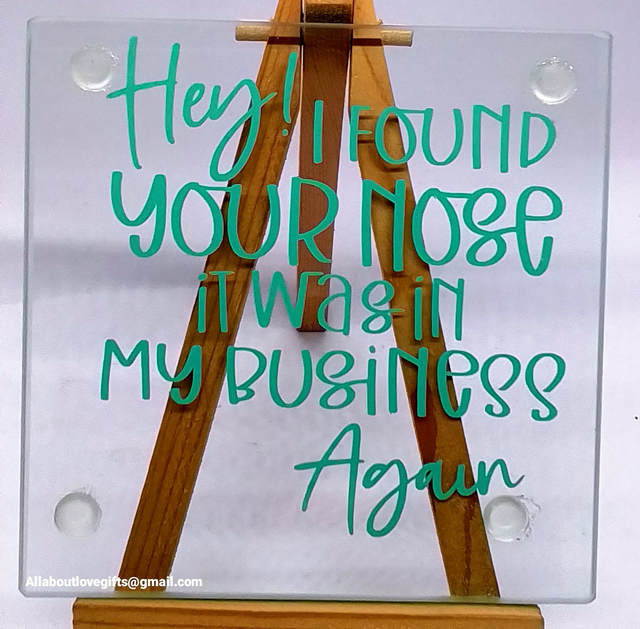 Hey! I FOUND
YOUR NOSE
iT WaS iN
MY BUSiNESS
Again
Allaboutlovegifts@gmail.com